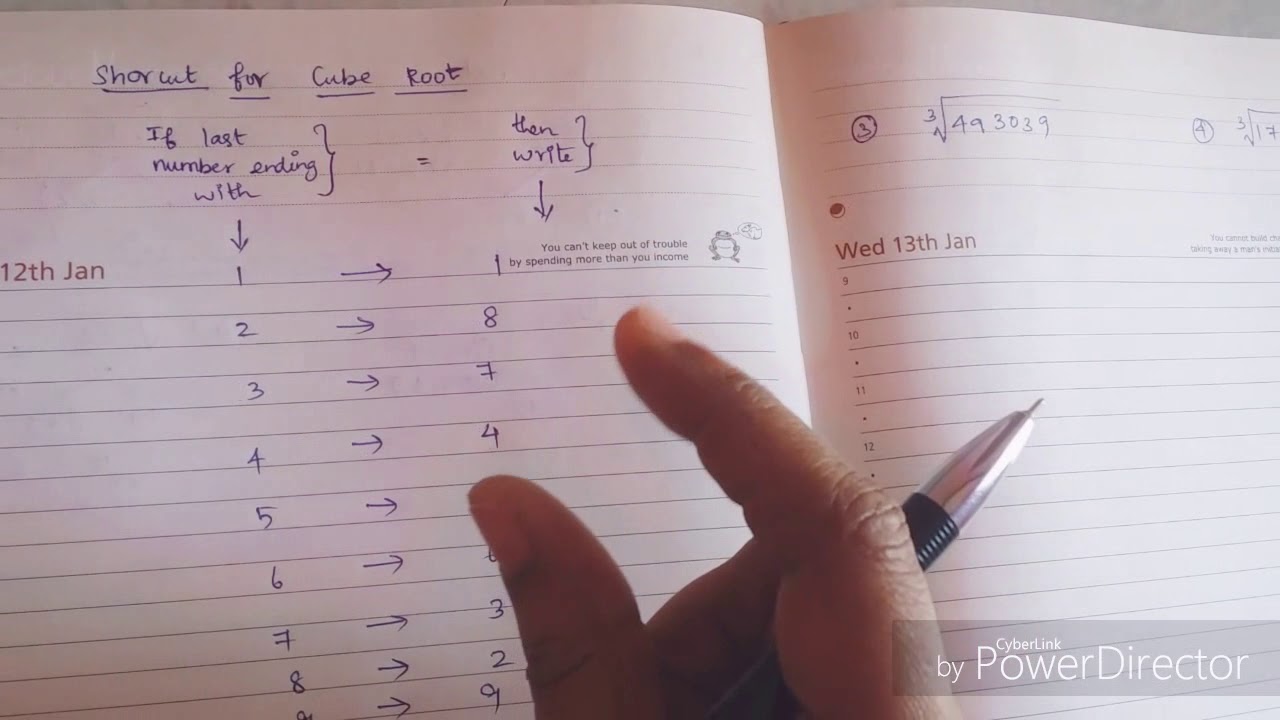 Shorcut for Cube Root
If last
number ending
with
=
then
write
↓
↓
12th Jan
You can't keep out of trouble
by spending more than you income
1 → 1
2 → 8
3 → 7
4 → 4
5 →
6 →
7 → 3
8 → 2
→ 9
③ ∛493039
④ ∛17
Wed 13th Jan
You cannot build
taking away a man's
9
10
11
12
CyberLink
by PowerDirector